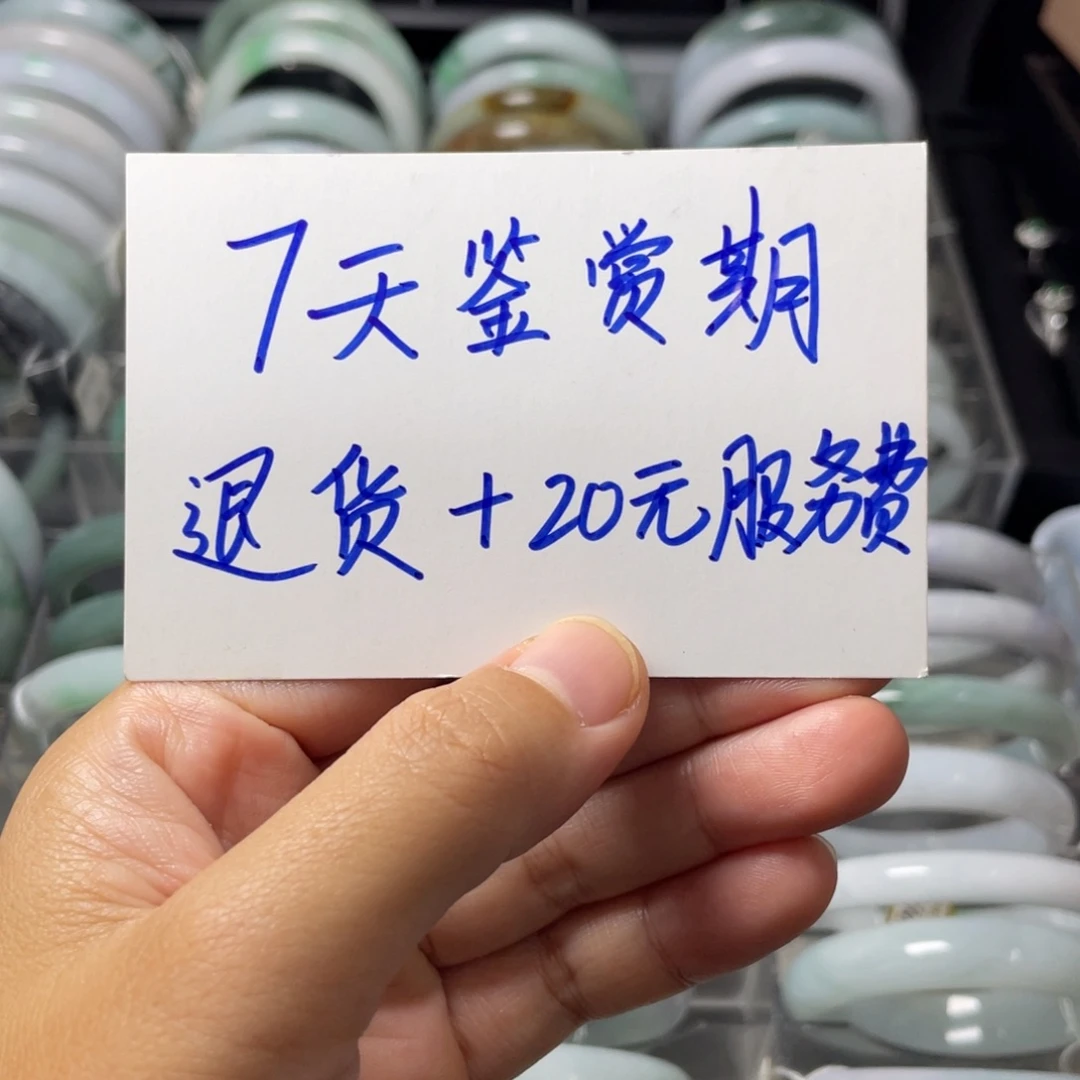 7天鉴赏期
退货+20元服务费